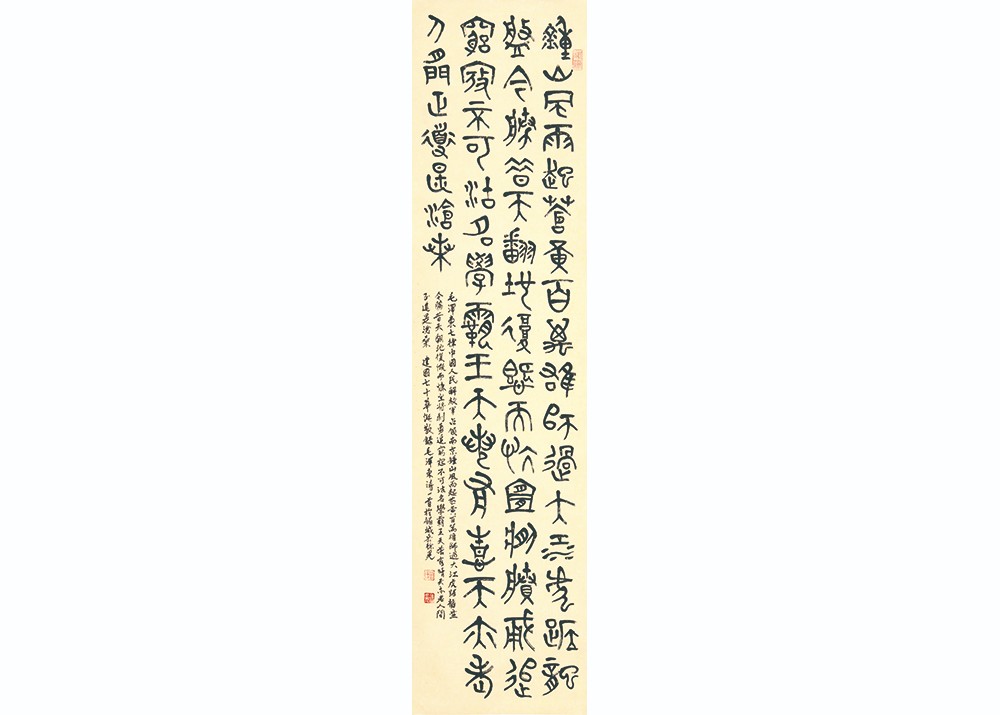 鍾山風雨起蒼黃百萬雄師過大江虎踞龍
盤今勝昔天翻地覆慨而慷宜將剩勇追
窮寇不可沽名學霸王天若有情天亦老
人間正道是滄桑
毛澤東七律中國人民解放軍占領南京鍾山風雨起蒼黃百萬雄師過大江虎踞龍盤
今勝昔天翻地覆慨而慷宜將剩勇追窮寇不可沽名學霸王天若有情天亦老人間
正道是滄桑 建國七十華誕敬錄毛澤東詩一首於錫城